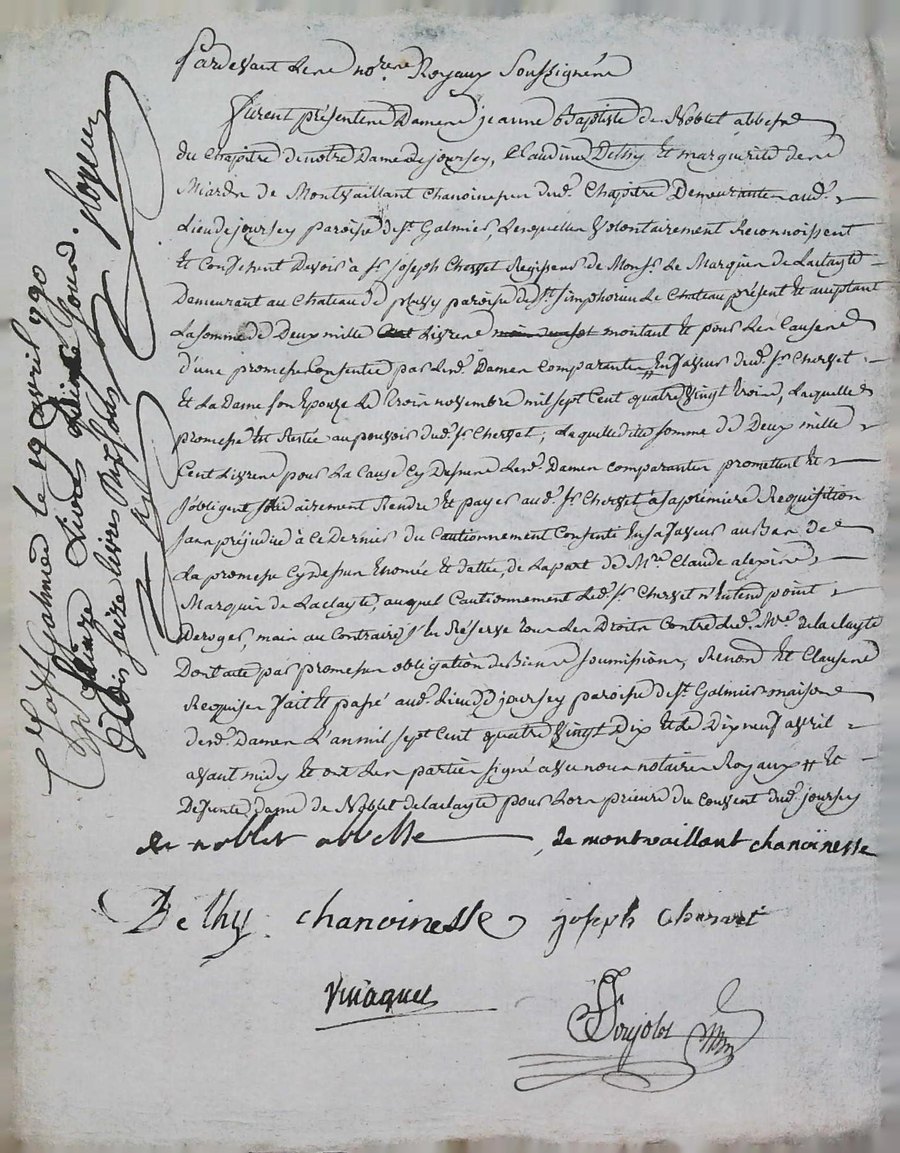 Pardevant Les no.res Royaux Soussignés
furent présentes Dames jeanne Baptiste de Noblet abbesse
du Chapitre de notre Dame de joursey, Claudine Delhy Et marguerite des
Miardn de Montvaillant Chanoinesses dud. Chapitre Demeurantes aud.
Lieu de joursey paroisse de St. Galmier, Lesquelles Volontairement Reconnoissent
Et Confessent Devoir à Sr. joseph Chesset Regisseur de Monsr. Le Marquis de Laclayte
Demeurant au Chateau de plessy paroisse de St. simphorien Le Chateau présent Et aceptant
La somme de Deux mille Cent Livres montant Et pour Les Causes
d'une promesse Consentie par Lesd. Dames Comparantes En faveur dud. Sr. Chesset
Et La Dame son Epouze Le trois novembre mil sept Cent quatre Vingt trois, Laquelle
promesse Est Restée au pouvoir dud. Sr. Chesset, Laquelle dite somme de Deux mille
Cent Livres pour La Cause Cy Dessus Lesd. Dames comparantes promettent Et
s'obligent solidairement Rendre Et payer aud. Sr. Chesset à sa premiere Requisition
sans préjudice à ce Dernier du Cautionnement Consenti En sa faveur au Bas de
La promesse Cy Dessus Enomée Et datée, de La part de Mre. Claude alexis
Marquis de Laclayte, auquel Cautionnement Led. Sr. Chesset n'Entend point
Deroger, mais au Contraire se Réserve tous Les Droits Contre led. Mr. de la clayte
Dont acte par promesses obligation de Biens soumissions, Renond Et Clauses
Requises fait Et passé aud. Lieu de joursey paroisse de St. Galmier maison
desd. Dames L'an mil sept Cent quatre Vingt Dix Et Le Dix neuf avril
avant midy Et ont Les parties signé avec nous notaires Royaux # Et
Defunte Dame de Noblet de laclayte pour Lors prieure du Couvent dud. joursey
de noblet abbesse de montvaillant chanoinesse
Delhy chanoinesse joseph Chesset
Ctle. à St Galmier le 19 avril 1790
Reçu quinze Livres